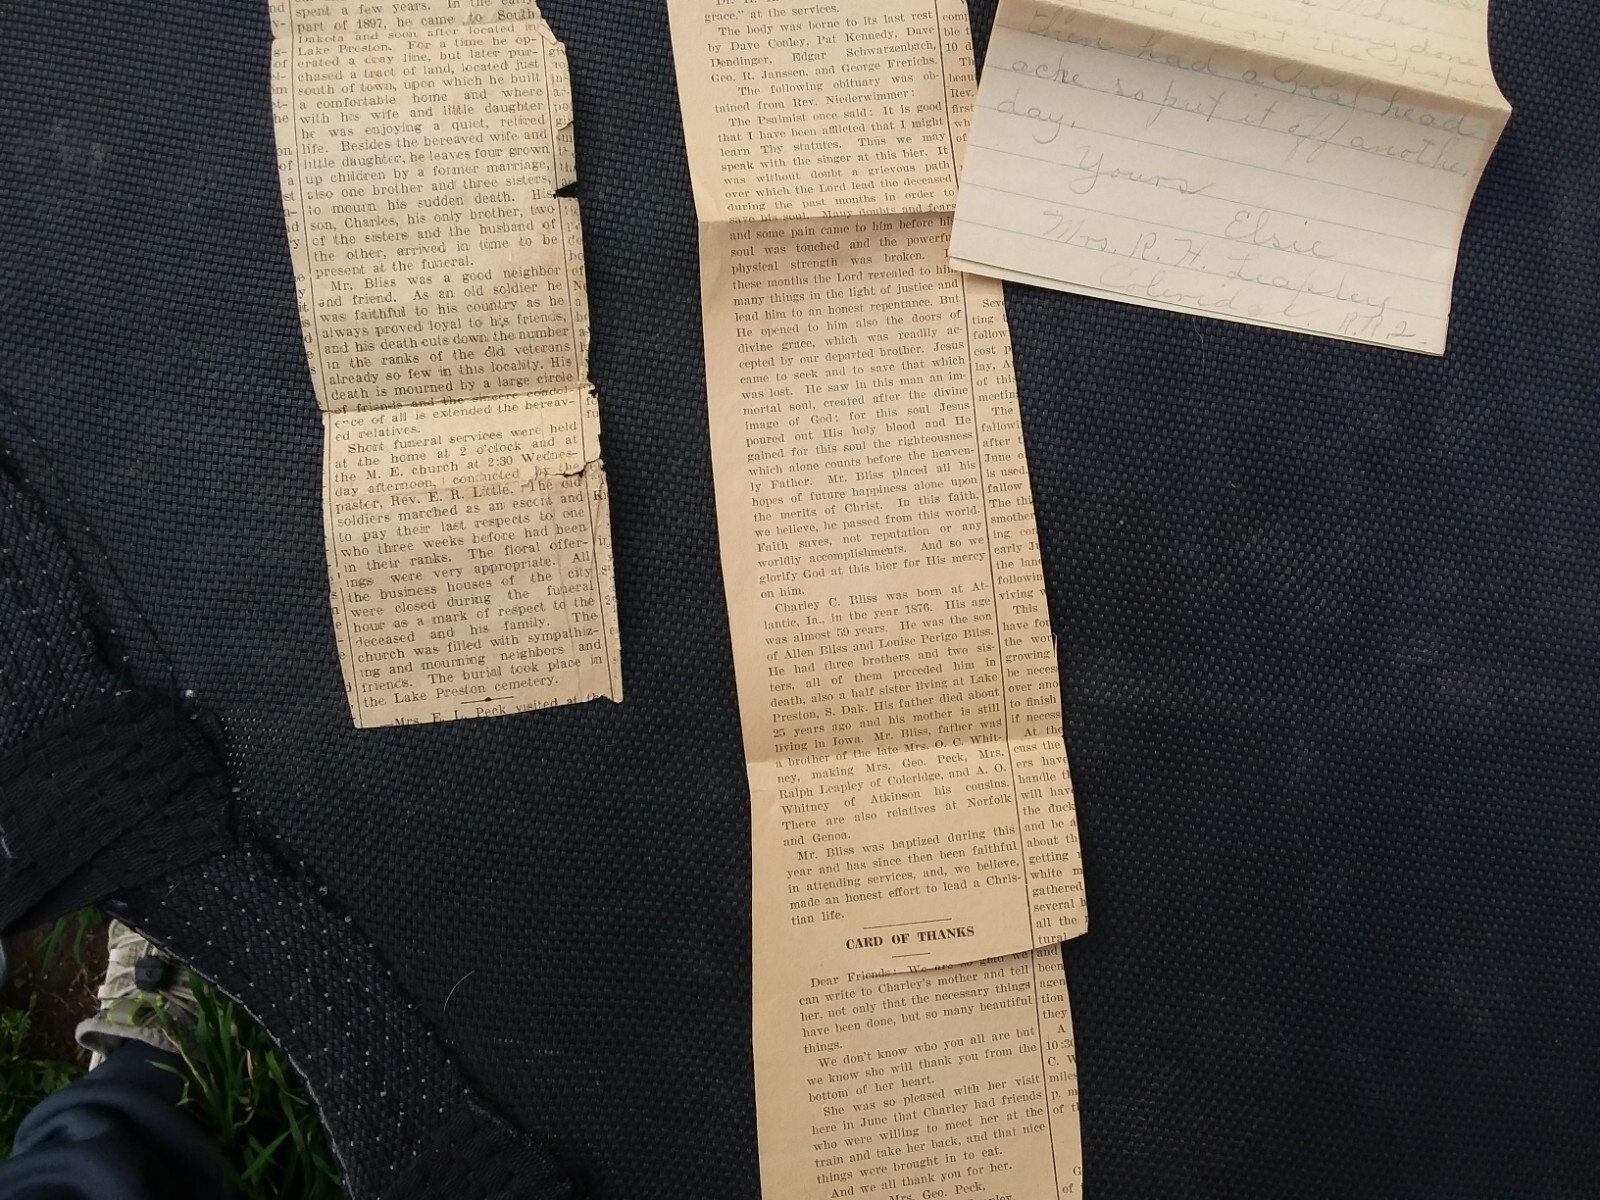 spent a few years. In the early
part of 1897, he came to South
Dakota and soon after located in
Lake Preston. For a time he op-
erated a dray line, but later pur-
chased a tract of land, located just
south of town, upon which he built
a comfortable home and where
with his wife and little daughter
he was enjoying a quiet, retired
life. Besides the bereaved wife and
little daughter, he leaves four grown
up children by a former marriage,
also one brother and three sisters,
to mourn his sudden death. His
son, Charles, his only brother, two
of the sisters and the husband of
the other, arrived in time to be
present at the funeral.
Mr. Bliss was a good neighbor
and friend. As an old soldier he
was faithful to his country as he
always proved loyal to his friends,
and his death cuts down the number
in the ranks of the old veterans
already so few in this locality. His
death is mourned by a large circle
of friends and the sincere condol-
ence of all is extended the bereav-
ed relatives.
Short funeral services were held
at the home at 2 o'clock and at
the M. E. church at 2:30 Wednes-
day afternoon, conducted by the
pastor, Rev. E. R. Little. The old
soldiers marched as an escort and
to pay their last respects to one
who three weeks before had been
in their ranks. The floral offer-
ings were very appropriate. All
the business houses of the city
were closed during the funeral
hour as a mark of respect to the
deceased and his family. The
church was filled with sympathiz-
ing and mourning neighbors and
friends. The burial took place in
the Lake Preston cemetery.
Mrs. E. L. Peck visited at the
grace." at the services.
The body was borne to its last rest
by Dave Conley, Pat Kennedy, Dave
Dendinger, Edgar Schwarzenbach,
Geo. R. Janssen, and George Frerichs.
The following obituary was ob-
tained from Rev. Niederwimmer:
The Psalmist once said: It is good
that I have been afflicted that I might
learn Thy statutes. Thus we may
speak with the singer at this bier. It
was without doubt a grievous path
over which the Lord lead the deceased
during the past months in order to
save his soul. Many doubts and fears
and some pain came to him before his
soul was touched and the powerful
physical strength was broken. In
these months the Lord revealed to him
many things in the light of justice and
lead him to an honest repentance. But
He opened to him also the doors of
divine grace, which was readily ac-
cepted by our departed brother. Jesus
came to seek and to save that which
was lost. He saw in this man an im-
mortal soul, created after the divine
image of God; for this soul Jesus
poured out His holy blood and He
gained for this soul the righteousness
which alone counts before the heaven-
ly Father. Mr. Bliss placed all his
hopes of future happiness alone upon
the merits of Christ. In this faith,
we believe, he passed from this world.
Faith saves, not reputation or any
worldly accomplishments. And so we
glorify God at this bier for His mercy
on him.
Charley C. Bliss was born at At-
lantic, Ia., in the year 1876. His age
was almost 59 years. He was the son
of Allen Bliss and Louise Perigo Bliss.
He had three brothers and two sis-
ters, all of them preceded him in
death, also a half sister living at Lake
Preston, S. Dak. His father died about
25 years ago and his mother is still
living in Iowa. Mr. Bliss, father was
a brother of the late Mrs. O. C. Whit-
ney, making Mrs. Geo. Peck, Mrs.
Ralph Leapley of Coleridge, and A. O.
Whitney of Atkinson his cousins.
There are also relatives at Norfolk
and Genoa.
Mr. Bliss was baptized during this
year and has since then been faithful
in attending services, and, we believe,
made an honest effort to lead a Chris-
tian life.
CARD OF THANKS
Dear Friends: We are so glad we
can write to Charley's mother and tell
her, not only that the necessary things
have been done, but so many beautiful
things.
We don't know who you all are but
we know she will thank you from the
bottom of her heart.
She was so pleased with her visit
here in June that Charley had friends
who were willing to meet her at the
train and take her back, and that nice
things were brought in to eat.
And we all thank you for her.
Mrs. Geo. Peck,
then had a head
ache so put it off another
day.
Yours
Elsie
Mrs. R. H. Leapley
Coleridge R.R.2.